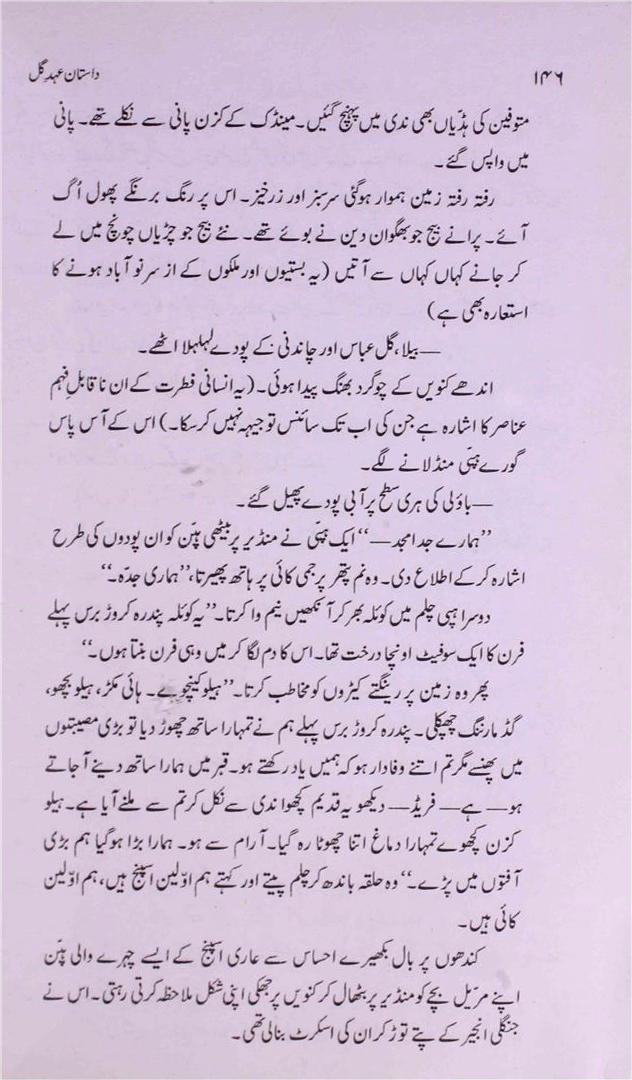 ۱۴۶
داستان عہدِ گل
متوفین کی ہڈیاں بھی ندی میں پہنچ گئیں۔ مینڈک کے کزن پانی سے نکلے تھے۔ پانی
میں واپس گئے۔
رفتہ رفتہ زمین ہموار ہوگئی سرسبز اور زرخیز۔ اس پر رنگ برنگے پھول اُگ
آئے۔ پرانے بیج جو بھگوان دین نے بوئے تھے۔ نئے بیج جو چڑیاں چونچ میں لے
کر جانے کہاں کہاں سے آتیں (یہ بستیوں اور ملکوں کے از سرنو آباد ہونے کا
استعارہ بھی ہے)
—بیلا، گل عباس اور چاندنی کے پودے لہلہا اٹھے۔
اندھے کنویں کے چوگرد بھنگ پیدا ہوئی۔ (یہ انسانی فطرت کے ان ناقابلِ فہم
عناصر کا اشارہ ہے جن کی اب تک سائنس توجیہہ نہیں کرسکا۔) اس کے آس پاس
گورے ہپّی منڈلانے لگے۔
—باؤلی کی ہری سطح پر آبی پودے پھیل گئے۔
”ہمارے جد امجد—“ ایک ہپّی نے منڈیر پر بیٹھی ہپّن کو ان پودوں کی طرح
اشارہ کر کے اطلاع دی۔ وہ نم پتھر پر جمی کائی پر ہاتھ پھیرتا، ”ہماری جدّہ۔“
دوسرا ہپی چلم میں کوئلہ بھر کر آنکھیں نیم وا کرتا۔ ”یہ کوئلہ پندرہ کروڑ برس پہلے
فرن کا ایک سو فیٹ اونچا درخت تھا۔ اس کا دم لگا کر میں وہی فرن بنتا ہوں۔“
پھر وہ زمین پر رینگتے کیڑوں کو مخاطب کرتا۔ ”ہیلو کینچوے۔ ہائی مکڑ، ہیلو بچھو،
گڈ مارننگ چھپکلی۔ پندرہ کروڑ برس پہلے ہم نے تمہارا ساتھ چھوڑ دیا تو بڑی مصیبتوں
میں پھنسے مگر تم اتنے وفادار ہو کہ ہمیں یاد رکھتے ہو۔ قبر میں ہمارا ساتھ دینے آ جاتے
ہو— ہے— فریڈ— دیکھو یہ قدیم کچھوا ندی سے نکل کر تم سے ملنے آیا ہے۔ ہیلو
کزن کچھوے تمہارا دماغ اتنا چھوٹا رہ گیا۔ آرام سے ہو۔ ہمارا بڑا ہوگیا ہم بڑی
آفتوں میں پڑے۔“ وہ حلقہ باندھ کر چلم پیتے اور کہتے ہم اوّلین اسپنج ہیں، ہم اوّلین
کائی ہیں۔
کندھوں پر بال بکھیرے احساس سے عاری اسپنج کے ایسے چہرے والی ہپّن
اپنے مریل بچے کو منڈیر پر بٹھال کر کنویں پر جھکی اپنی شکل ملاحظہ کرتی رہتی۔ اس نے
جنگلی انجیر کے پتے توڑ کر ان کی اسکرٹ بنالی تھی۔